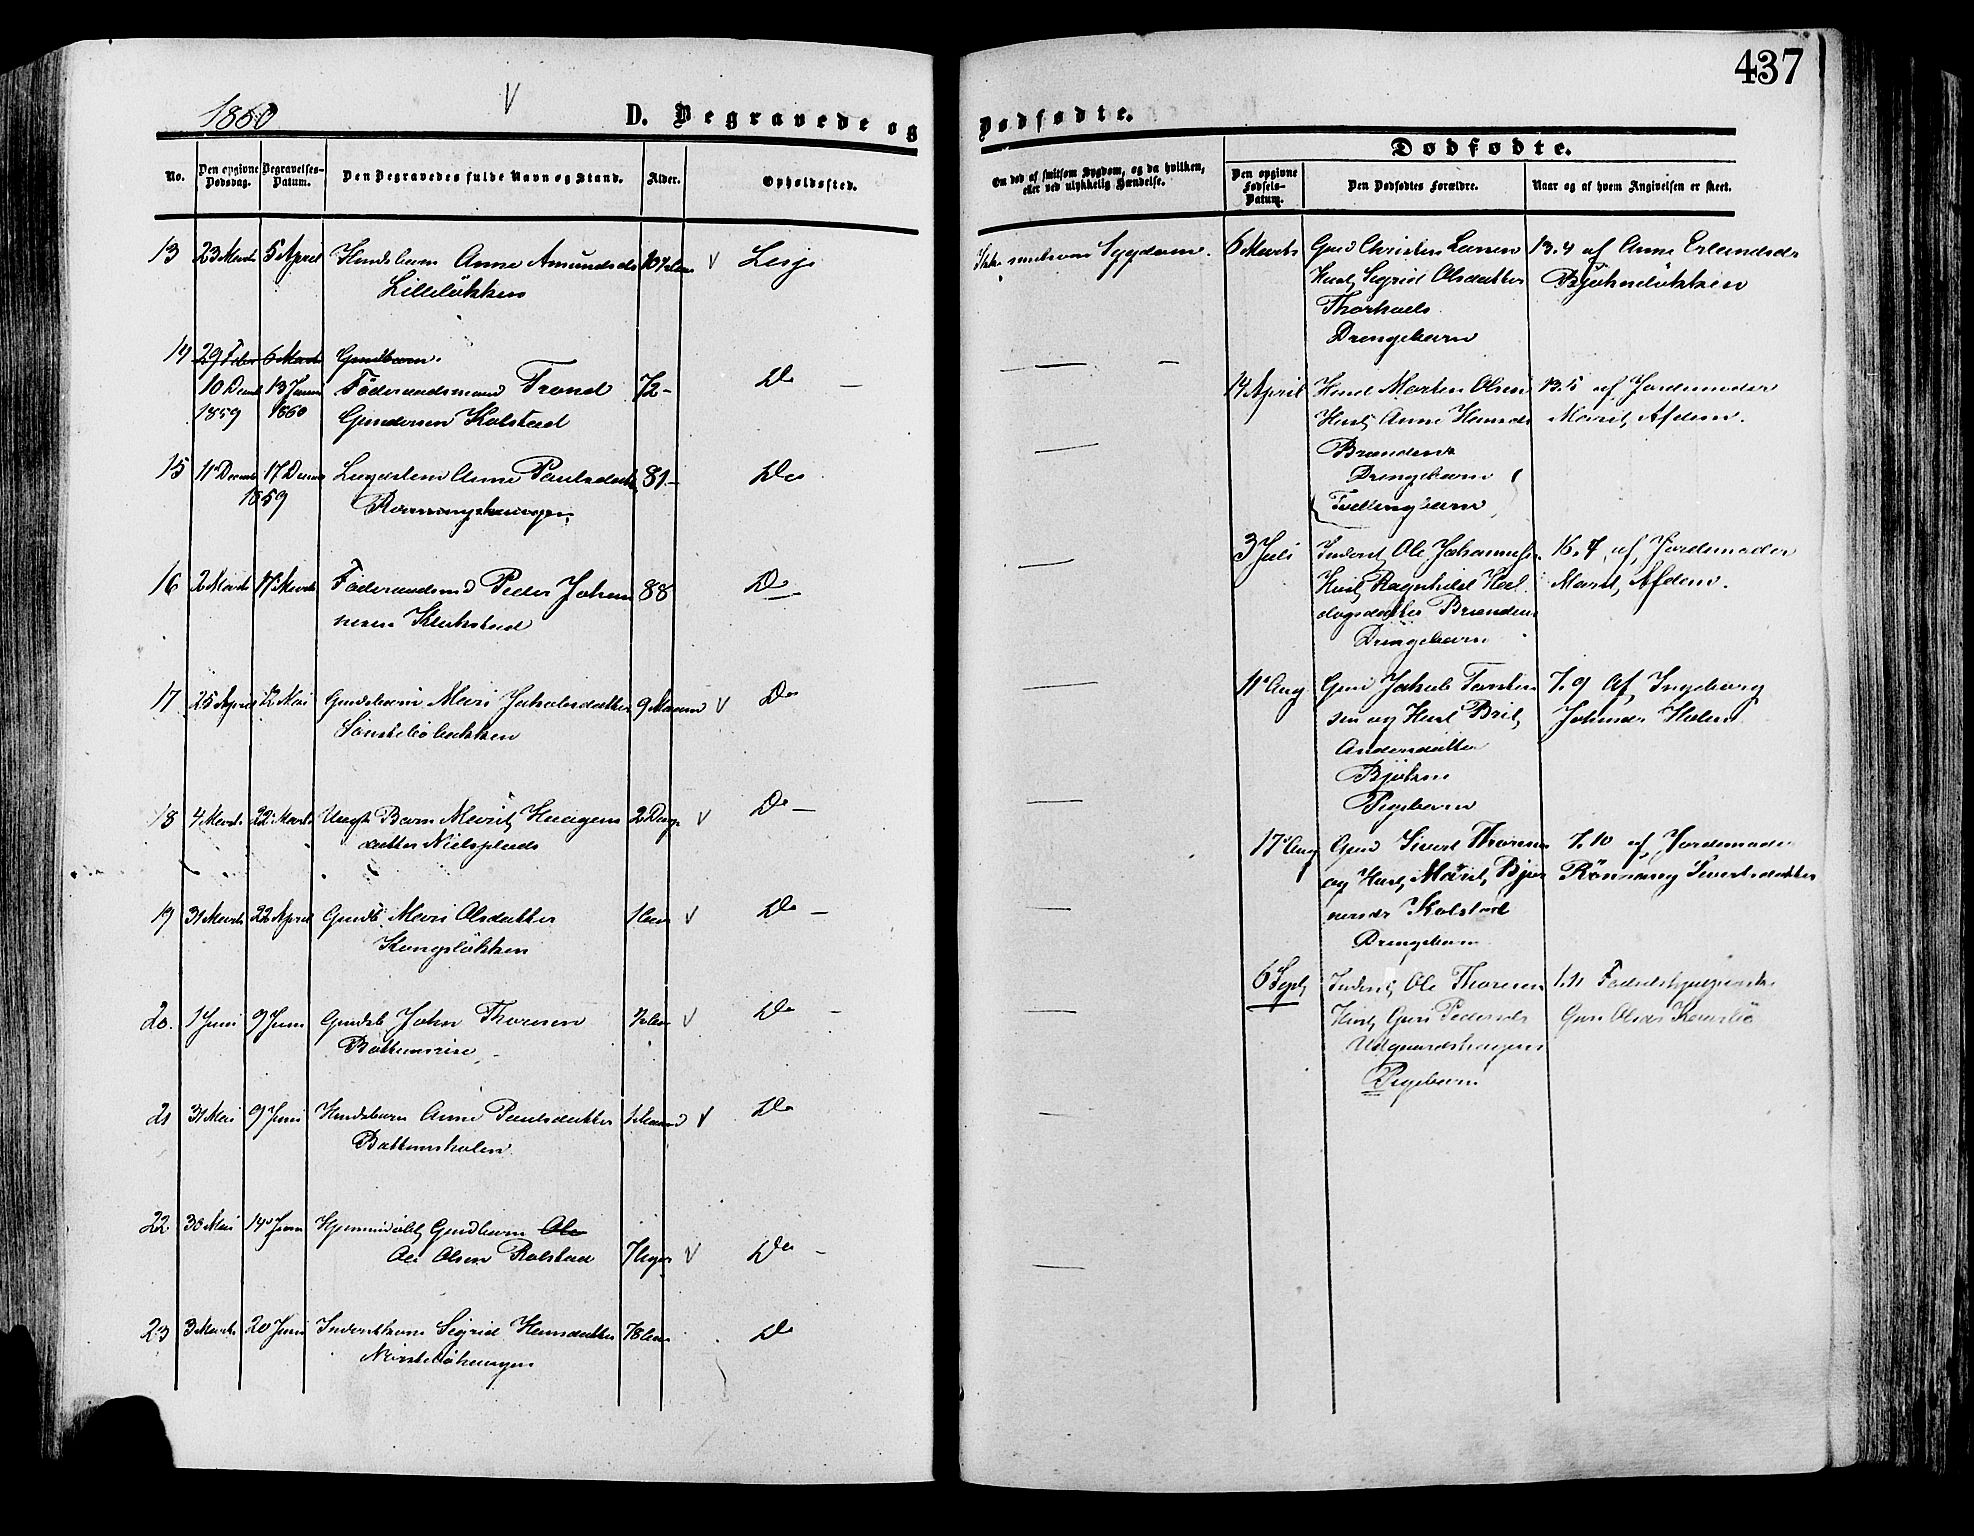 437
1860
V
D. Begravede og
Dødfødte.
No.
Den opgivne Dødsdag.
Begravelses-Datum.
Den Begravedes fulde Navn og Stand.
Alder.
Opholdssted.
Om død af smitsom Sygdom, og da hvilken,
eller ved ulykkelig Hændelse.
Dødfødte.
Den opgivne Fødsels-Datum.
Den Dødfødtes Forældre.
Naar og af hvem Angivelsen er skeet.
13 23 Marts 5 April Huusbarn Anne Amundsds V Lesje
Lilleløkken
14 29 Febr 6 Marts Gmdbarn.
10 Decmb 13 Januar Føderaadsmand Trond 72- Do —
1859 1860 Gundersen Kolstad
15 11 Decmb 17 Decmb Anne Paulsdatter 81- Do
1859
16 2 Marts 17 Marts Føderaadsmd Peder Johan 88 Do
nesen
17 25 April 12 Mai Gmdsbarn Mari Jakobsdatter 9 Maaned V Do
Sønstebøbakken
18 4 Marts 22 Marts Uægte Barn Marit Haagens 2 Dage V Do —
datter Nielsplads
19 31 Marts 22 April Gmdsb Mari Olsdatter 1 Aar V Do —
Kongsløkken
20. 1 Juni 9 Juni Gmdsb John Thoresen V Do —
21 31 Mai 9 Juni Huusbarn Anne Paulsdatter 1 Maaned V Do
Bottumsholen
22 30 Mai 14 Juni Hjemmedøbt Gmdbarn Ole
Ole Olsen Rolstad 7 Uger V Do —
23 3 Marts 20 Juni Sigrid Hansdatter 78 Aar Do
Ikke smitsom Sygdom.
6 Marts Gmd Christen Larsen 13.4 af Anne Erlandsds
Hust Sigrid Olsdatter Bjøkneløkken
Drengebarn
14 April Huusmd Morten Olsen 13.5 af Jordemoder
Hust Anne Hansds Marit Afdem.
Brandens
Drengebarn
Tvillingbarn
3 Juli Inderst Ole Johannesen 16.7 af Jordemoder
Hust Ragnhild Hal Marit Afdem.
dogsdatter Branden
Drengebarn
11 Aug Gmd Jakob Torsten 7.9 af Ingeborg
sen og Hust Brit Johnsds Holen
Andersdatter
Bjøkne
Pigebarn
17 Aug Gmd Sivert Thoresen 7.10 af Jordemoder
og Hust Marit Bjør Rønnaug Sivertsdatter
nersdr Kolstad
Drengebarn
6 Sept Inderst Ole Thoresen 1.11
Hust Guri Pedersds Guri Olsds
Udgaardshaugen
Pigebarn